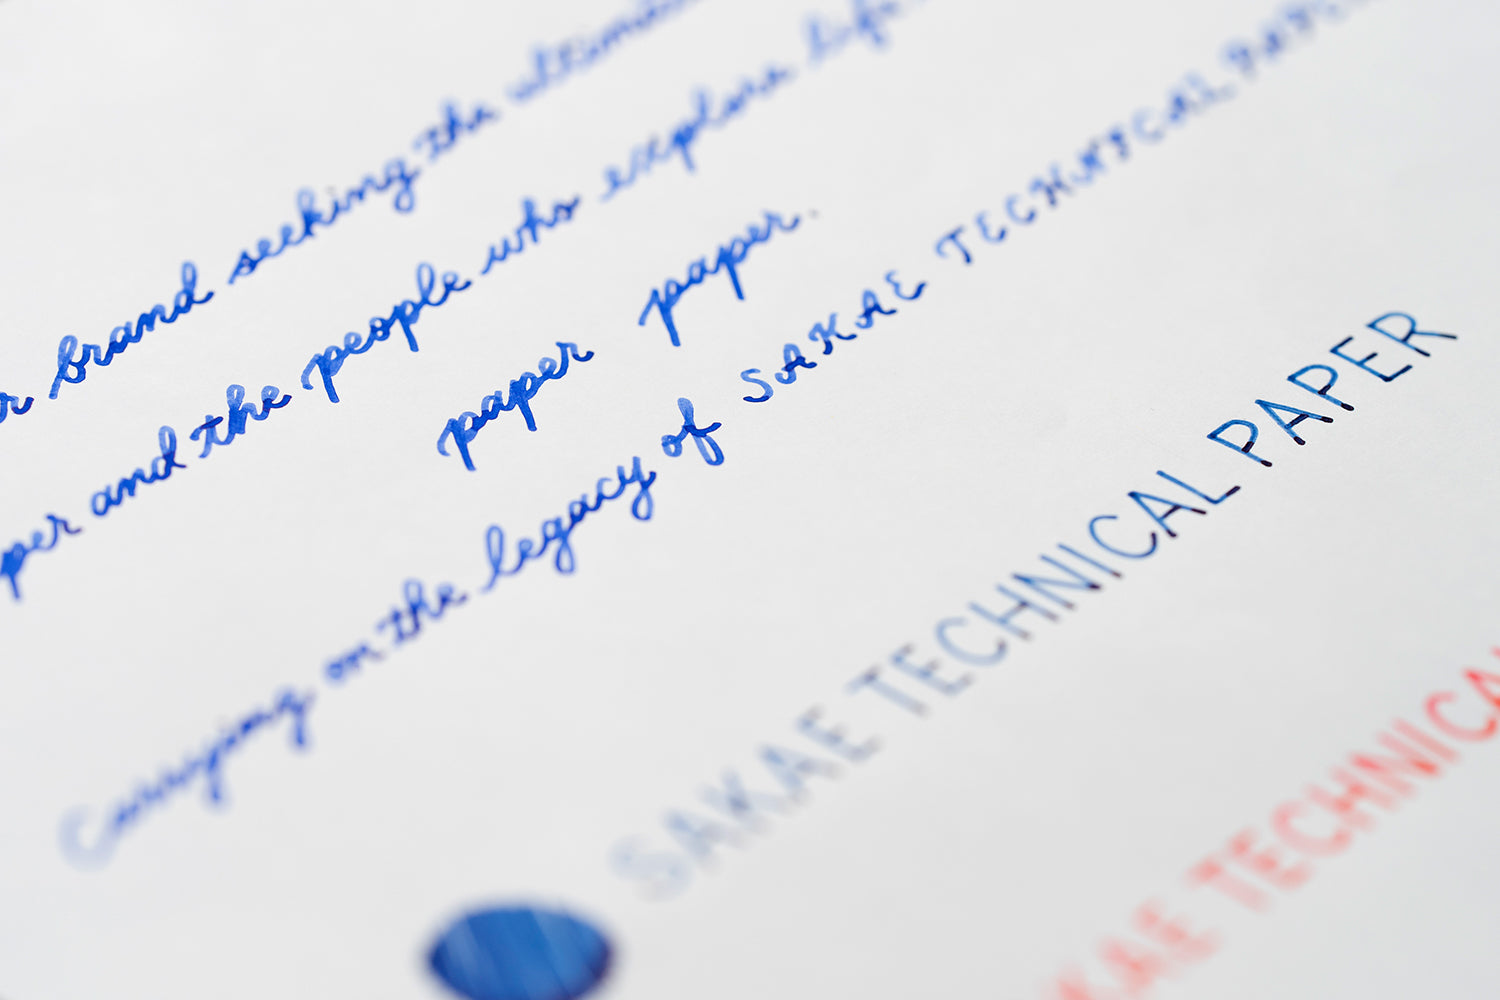 r brand seeking the ultima
per and the people who explore life
paper paper.
Carrying on the legacy of SAKAE TECHNICAL PAPE
SAKAE TECHNICAL PAPER
KAE TECHNICA